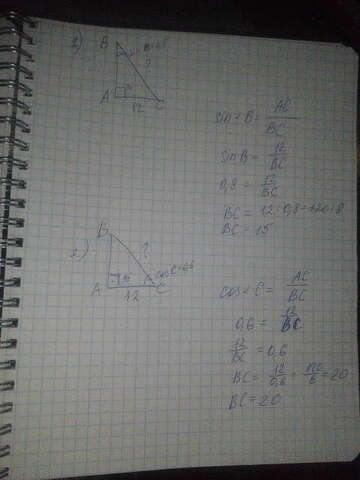 B
?
A
12
C
sin < B = AC / BC
sin B = 12 / BC
0,8 = 12 / BC
BC = 12 : 0,8 = 120 : 8
BC = 15
2)
B
?
cos C = 0,6
A
12
C
cos < C = AC / BC
0,6 = 12 / BC
12 / BC = 0,6
BC = 12 / 0,6 = 120 / 6 = 20
BC = 20